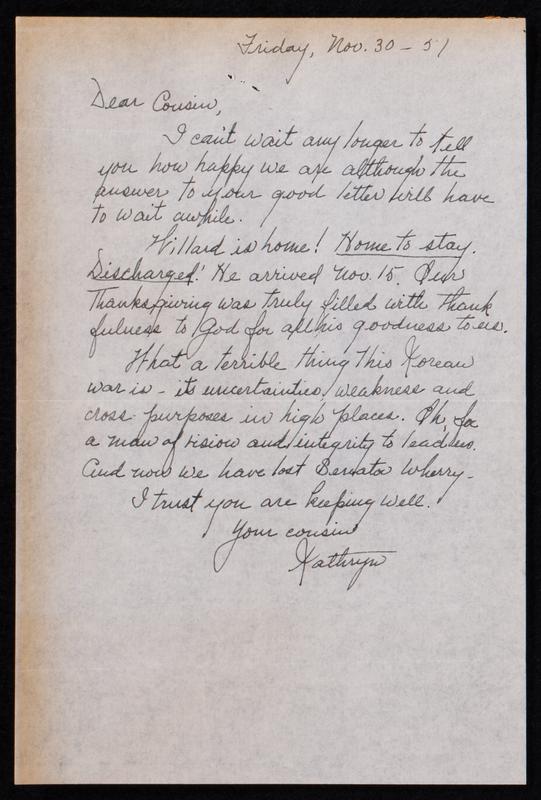 Friday, Nov. 30 - 51
Dear Cousin,
I can't wait any longer to tell
you how happy we are although the
answer to your good letter will have
to wait awhile.
Willard is home! Home to stay.
Discharged! He arrived Nov. 15. Our
Thanksgiving was truly filled with thank
fulness to God for all his goodness to us.
What a terrible thing this Korean
war is - its uncertainties, weakness and
cross-purposes in high places. Oh, for
a man of vision and integrity to lead us.
And now we have lost Senator Wherry.
I trust you are keeping well.
Your cousin
Kathryn